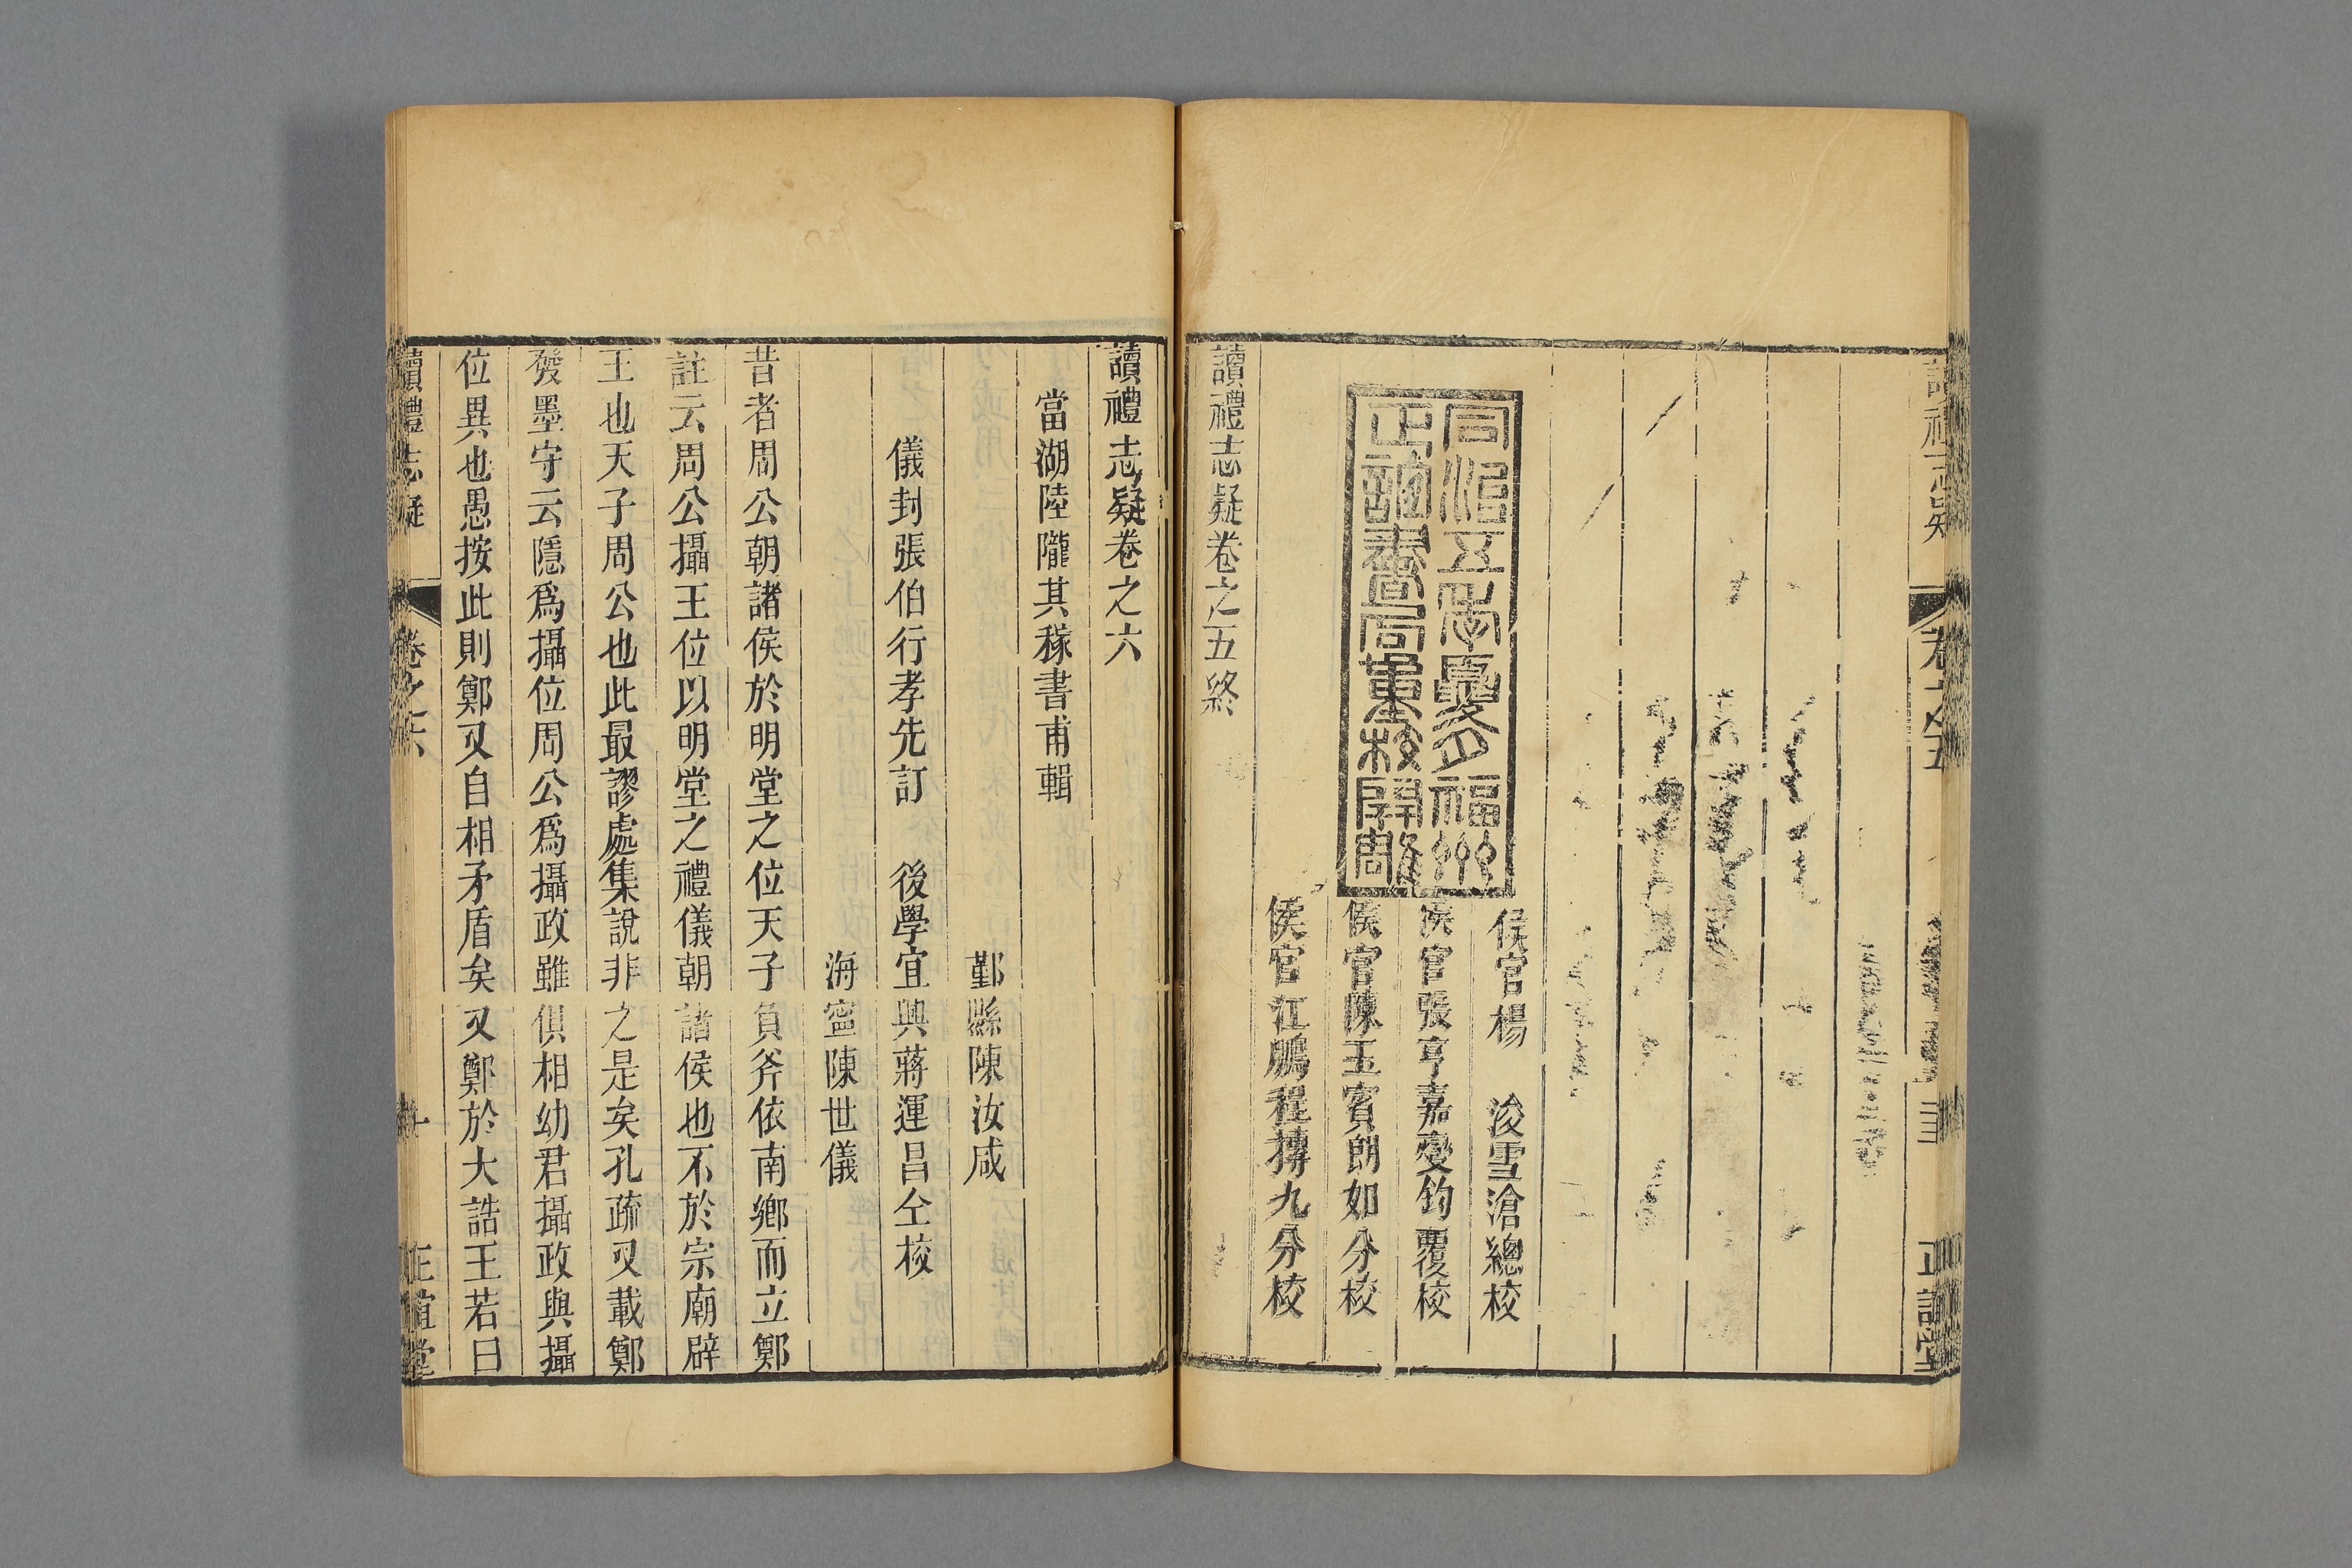 同治五年夏月福州
正誼書局重校開雕
侯官楊　浚雪滄總校
侯官張亨嘉燮鈞覆校
侯官陳玉賓朗如分校
侯官江鵬程摶九分校
讀禮志疑卷之五終
讀禮志疑卷之六
當湖陸隴其稼書甫輯
鄞縣陳汝咸
儀封張伯行孝先訂　後學宜興蔣運昌仝校
海寧陳世儀
昔者周公朝諸侯於明堂之位天子負斧依南鄉而立鄭
註云周公攝王位以明堂之禮儀朝諸侯也不於宗廟辟
王也天子周公也此最謬處集說非之是矣孔疏又載鄭
發墨守云隱爲攝位周公爲攝政雖俱相幼君攝政與攝
位異也愚按此則鄭又自相矛盾矣又鄭於大誥王若曰
讀禮志疑　卷之六　一　正誼堂